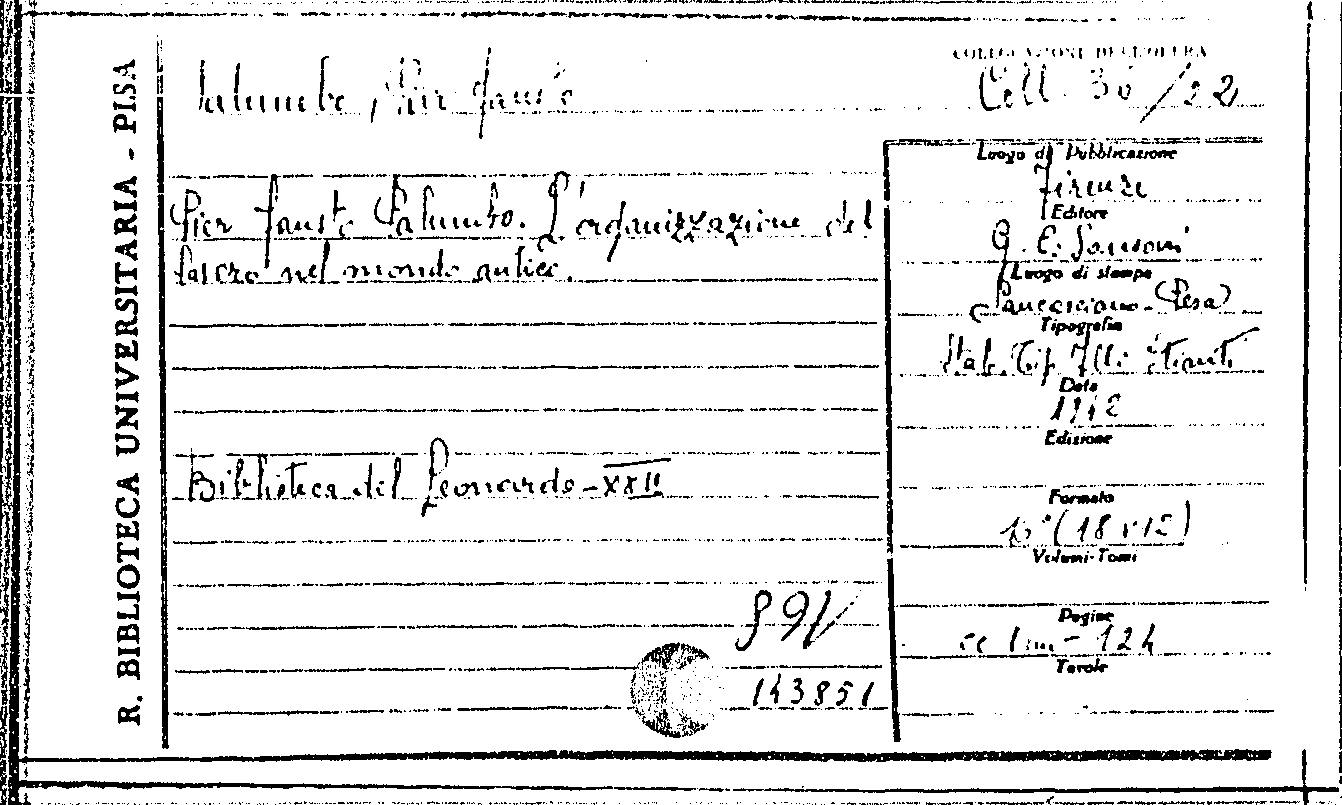 R. BIBLIOTECA UNIVERSITARIA - PISA
COLLOCAZIONE DELL'OPERA
Palumbo, Pier Fausto
Coll. 36/22
Pier Fausto Palumbo. L'organizzazione del
lavoro nel mondo antico.
Biblioteca del Leonardo - XXII
143851
Luogo di Pubblicazione
Firenze
Editore
G. C. Sansoni
Luogo di stampa
Sancasciano - (Pesa)
Tipografia
Stab. Tip. F.lli Stianti
Data
1942
Edizione
Formato
(18 x 12)
Volumi-Tomi
Pagine
124
Tavole